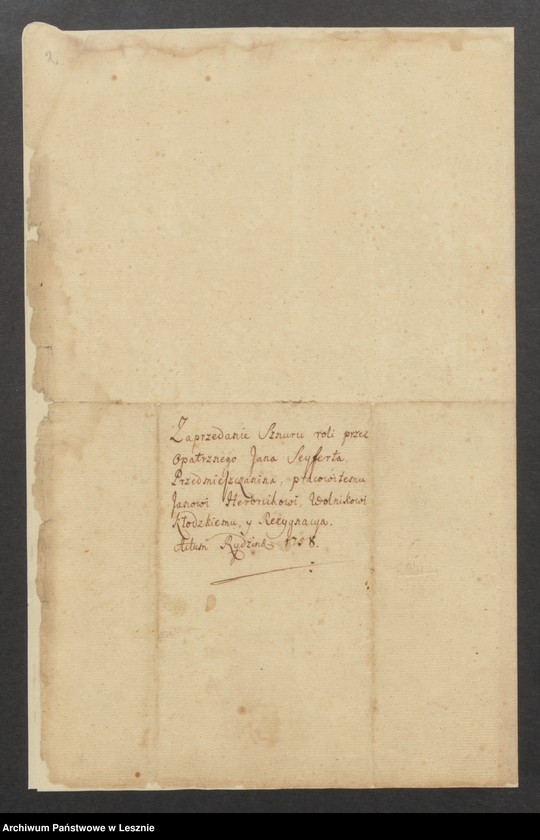 2
Zaprzedanie Sznuru roli przez
Opatrznego Jana Seyferta
Przedmieszczanina, pracowitemu
Janowi Herbnikowi, Wolnikowi
Kłodzkiemu, y Rezygnacya.
Actum Rydzina 1758.
Archiwum Państwowe w Lesznie